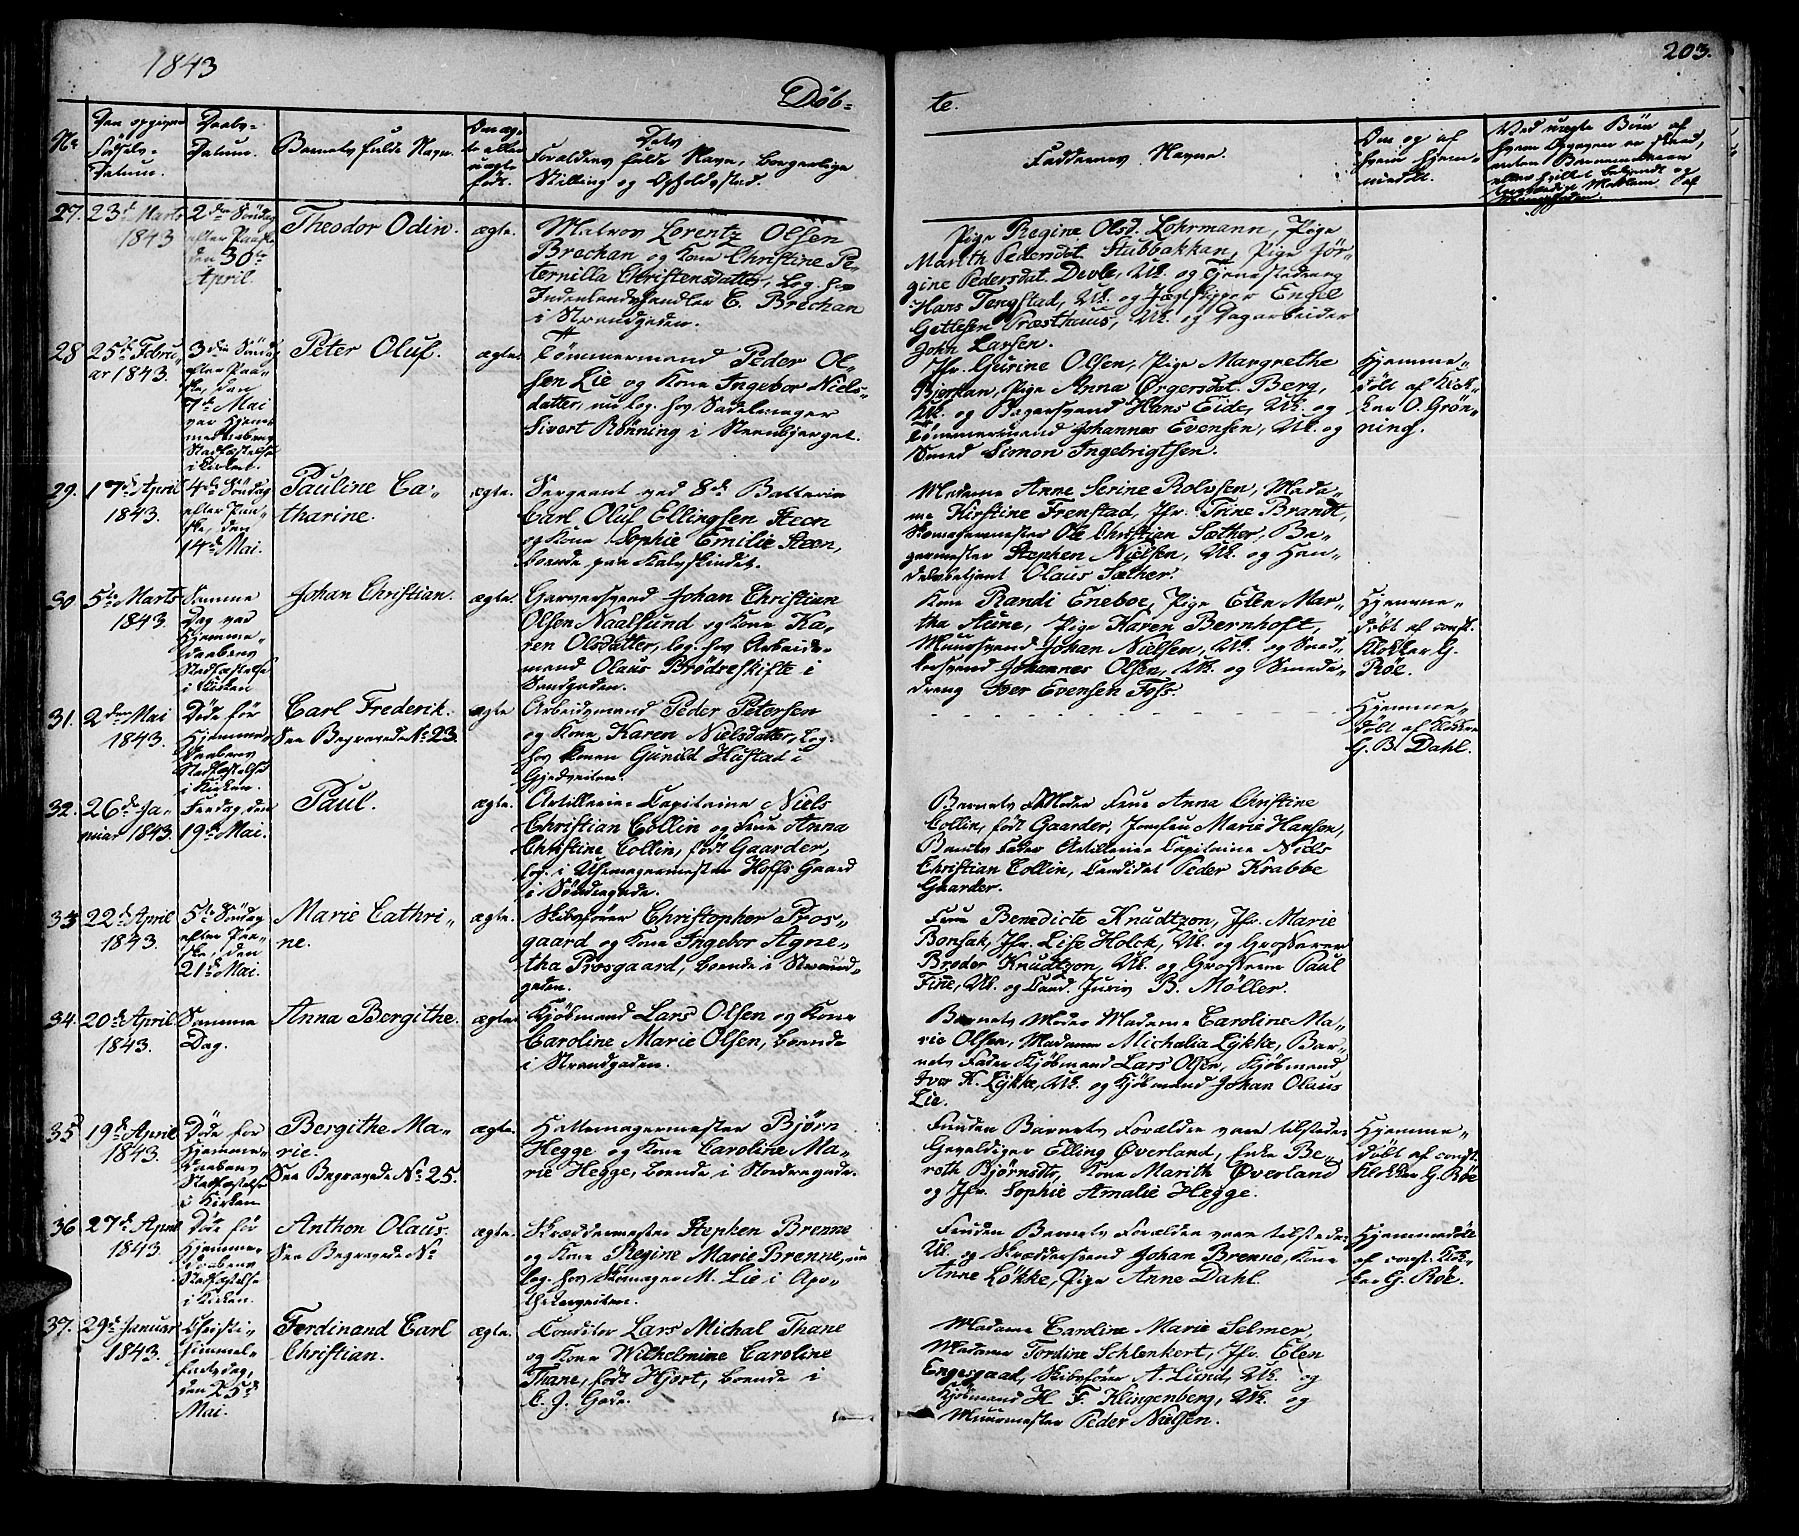 1843
203.
Døb-
te.
No
Den opgivne
Fødsels-
Datum.
Daabs-
Datum.
Barnets fulde Navn.
Om æg-
te eller
uægte
født.
Dets
Forældres fulde Navn, borgerlige
Stilling og Opholdssted.
Faddernes Navne.
Om og af
hvem hjem-
medøbt.
Ved uægte Børn af
27.
23d Marts
1843
2den Søndag
efter Paaske
den 30te
April.
Theodor Odin.
ægte.
Matros Lorentz Olsen
Brechan og Kone Christine Pe-
ternilla Christensdatter, log. hos
Indenlandshandler C. Brechan
i Strandgaden.
Pige Regine Olsd. Lohrmann, Pige
Marith Pedersdat Stubbakkan, Pige Jør-
gine Pedersdat. Devle, Uk. og Tjenestedreng
Hans Tengstad, Uk. og Jægtskipper Engel
Getlesen Præsthuus, Uk. og Dagarbeider
John Larsen.
28
25de Febru-
ar 1843.
3die Søndag
efter Paa-
ske, den
7de Mai
var Hjem-
medaabens
Stadfæstelse
i Kirken.
Peter Oluf.
ægte
Tømmermand Peder Ol-
sen Lie og Kone Ingebor Niels-
datter, nu log. hos Sadelmager
Sivert Rønning i Steenbjerget.
Jfr. Gurine Olsen, Pige Margrethe
Bjerkan, Pige Anna Ørgersdat. Berg,
Uk. og Bagersvend Hans Eide, Uk. og
Tømmermand Johannes Evensen, Uk. og
Smed Simon Ingebrigtsen.
Hjemme-
døbt af Klok-
ker O. Grøn-
ning.
29.
17de April
1843.
4de Søndag
efter Paa-
ske, den
14de Mai.
Pauline Ca-
tharine.
ægte.
Sergeant ved 8de Batterie
Carl Oluf Ellingsen Steen
og Kone Sophie Emilie Steen,
boende paa Kalvskindet.
Madame Anne Serine Rolvsen, Mada-
me Kirstine Frenstad, Jfr. Trine Brandt,
Skomagermester Ole Christian Sæther, Ba-
germester Stephen Nielsen, Uk. og Han-
delsbetjent Olaus Sæther.
30
5te Marts
1843.
Samme
Dag var
Hjemme-
daabens
Stadfæstelse
i Kirken
Johan Christian.
ægte.
Garversvend Johan Christian
Olsen Naalsund og Kone Ka-
ren Olsdatter, log. hos Arbeids-
mand Olaus Brødreskifte i
Sandgaden.
Kone Randi Eneboe, Pige Elen Mar-
tha Aune, Pige Karen Bernhoft,
Muursvend Johan Nielsen, Uk. og Sned-
kersvend Johannes Olsen, Uk. og Smede-
dreng Iver Evensen Foss.
Hjemme-
døbt af const.
Klokker G.
Røe.
31.
2den Mai
1843.
Døde før
Hjemme-
daabens
Stadfæstelse
i Kirken.
Carl Frederik.
See Begravede No 23.
ægte
Arbeidsmand Peder Petersen
og Kone Karen Nielsdatter, log.
hos Konen Gunild Hustad i
Gjedveiten.
Hjemme-
døbt af Klokker
G. B. Dahl.
32.
26de Ja-
nuar 1843.
Fredag den
19de Mai.
Paul.
ægte.
Artillerie-Capitaine Niels
Christian Collin og Frue Anna
Christine Collin, født Gaarder,
log. i Uhrmagermester Hoffs Gaard
i Søndregade.
Barnets Moder Frue Anna Christine
Collin, født Gaarder, Jomfru Marie Hansen,
Barnets Fader Artillerie Capitaine Niels
Christian Collin, Candidat Peder Krabbe
Gaarder.
33
22de April
1843.
5te Søndag
efter Paa-
ske, den
21de Mai.
Marie Cathri-
ne.
ægte.
Skibsfører Christopher Pros-
gaard og Kone Ingebor Agne-
tha Prosgaard, boende i Strand-
gaden.
Frue Benedicte Knudtzon, Jfr. Marie
Bonsak, Jfr. Lise Holck, Uk. og Grosserer
Broder Knudtzon, Uk. og Grosserer Paul
Finne, Uk. og Cand. Juris B. Møller.
34.
20de April
1843.
Samme
Dag.
Anna Bergithe.
ægte
Kjøbmand Lars Olsen og Kone
Caroline Marie Olsen, boende
i Strandgaden.
Barnets Moder Madame Caroline Ma-
rie Olsen, Madame Michalia Lykke, Bar-
nets Fader Kjøbmand Lars Olsen, Kjøbmand
Iver K. Lykke, Uk. og Kjøbmand Johan Olaus
Lie.
35
19de April
1843.
Døde før
Hjemme-
daabens
Stadfæstelse
i Kirken
Bergithe Ma-
rie.
See Begravede No 25.
ægte.
Hattemagermester Bjørn
Hegge og Kone Caroline Ma-
rie Hegge, boende i Nordregade.
Foruden Barnets Forældre vare tilstede
Gevaldiger Elling Øverland, Enke Be-
rette Bjørnsdt, Kone Marith Øverland
og Jfr. Sophie Amalie Hegge.
Hjemme-
døbt af const.
Klokker G. Røe
36
27de April
1843.
Døde før
Hjemme-
daabens
Stadfæstelse
i Kirken.
Anthon Olaus.
See Begravede No
ægte.
Skræddermester Stephen Brenne
og Kone Regine Marie Brenne, nu
log. hos Skomager M. Lie i Apo-
thekerveiten.
Foruden Barnets Forældre vare tilstede
Uk. og Skræddersvend Johan Brenne, Kone
Anne Løkke, Pige Anne Dahl.
Hjemmedøbt
af const. Klok-
ker G. Røe.
37.
29de Januar
1843.
Christi-
himmel-
fartsdag,
den 25de
Mai.
Ferdinand Carl
Christian.
ægte.
Conditor Lars Michal Thane
og Kone Wilhelmine Caroline
Thane, født Hjort, boende i
C. J. Gade.
Madame Caroline Marie Selmer,
Madame Tordine Schlenkert, Jfr. Elen
Engesgaad, Skibsfører A. Lund, Uk. og
Kjøbmand H. F. Klingenberg, Uk. og
Muurmester Peder Nielsen.